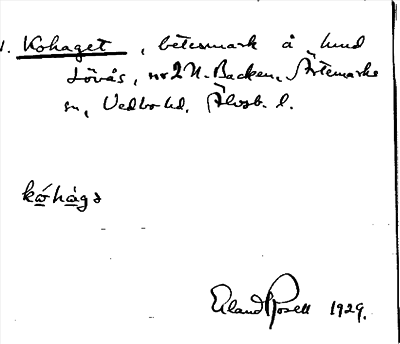 1. Kohaget, betesmark å hmd
Lövås, nr 2 N. Backen, Ärtemarks
sn, Vedbo hd, Älvsb. l.
kóhàgə
Erland Rosell 1929.